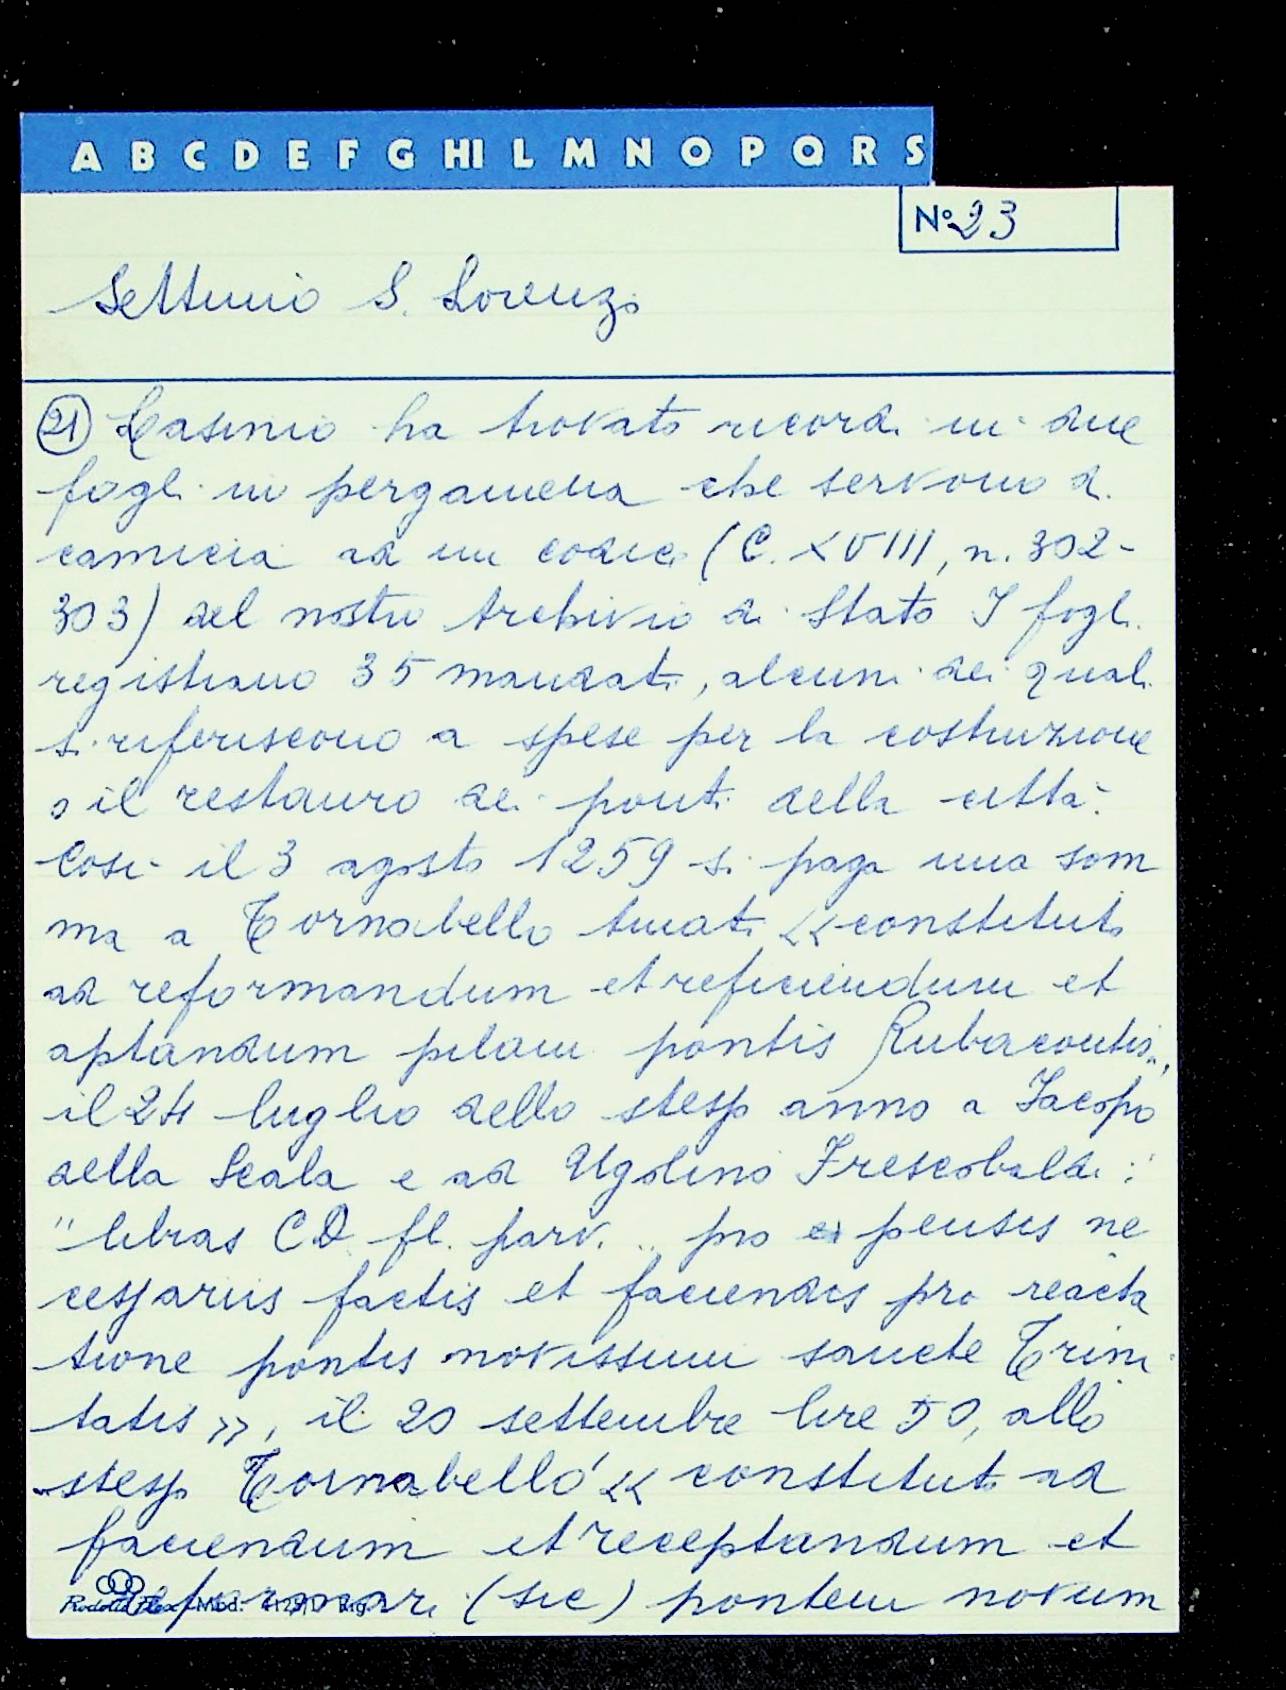 A B C D E F G HI L M N O P Q R S
No 23
Settimio S. Lorenzo
(21) Casinio ha trovato ricordi in due
fogli in pergamena che servono di
camicia ad un codice (C. XVIII, n. 302-
303) del nostro Archivio di Stato I fogli
registrano 35 mandati, alcuni dei quali
si riferiscono a spese per la costruzione
o il restauro dei ponti della città.
Così il 3 agosto 1259 si paga una som
ma a Tornabello «constituto
ad reformandum et reficiendum et
aptandum pilam pontis Rubacontis",
il 24 luglio dello stesso anno a Iacopo
della Scala e ad Ugolino Frescobaldi:
"libras CD fl. parv. .. pro expensis ne
cessariis factis et faciendis pro reacta
tione pontis novissimi sancte Trini
tatis», il 20 settembre lire 50, allo
stesso Tornabello «constituto ad
faciendum et receptandum et
reformari (sic) pontem novum